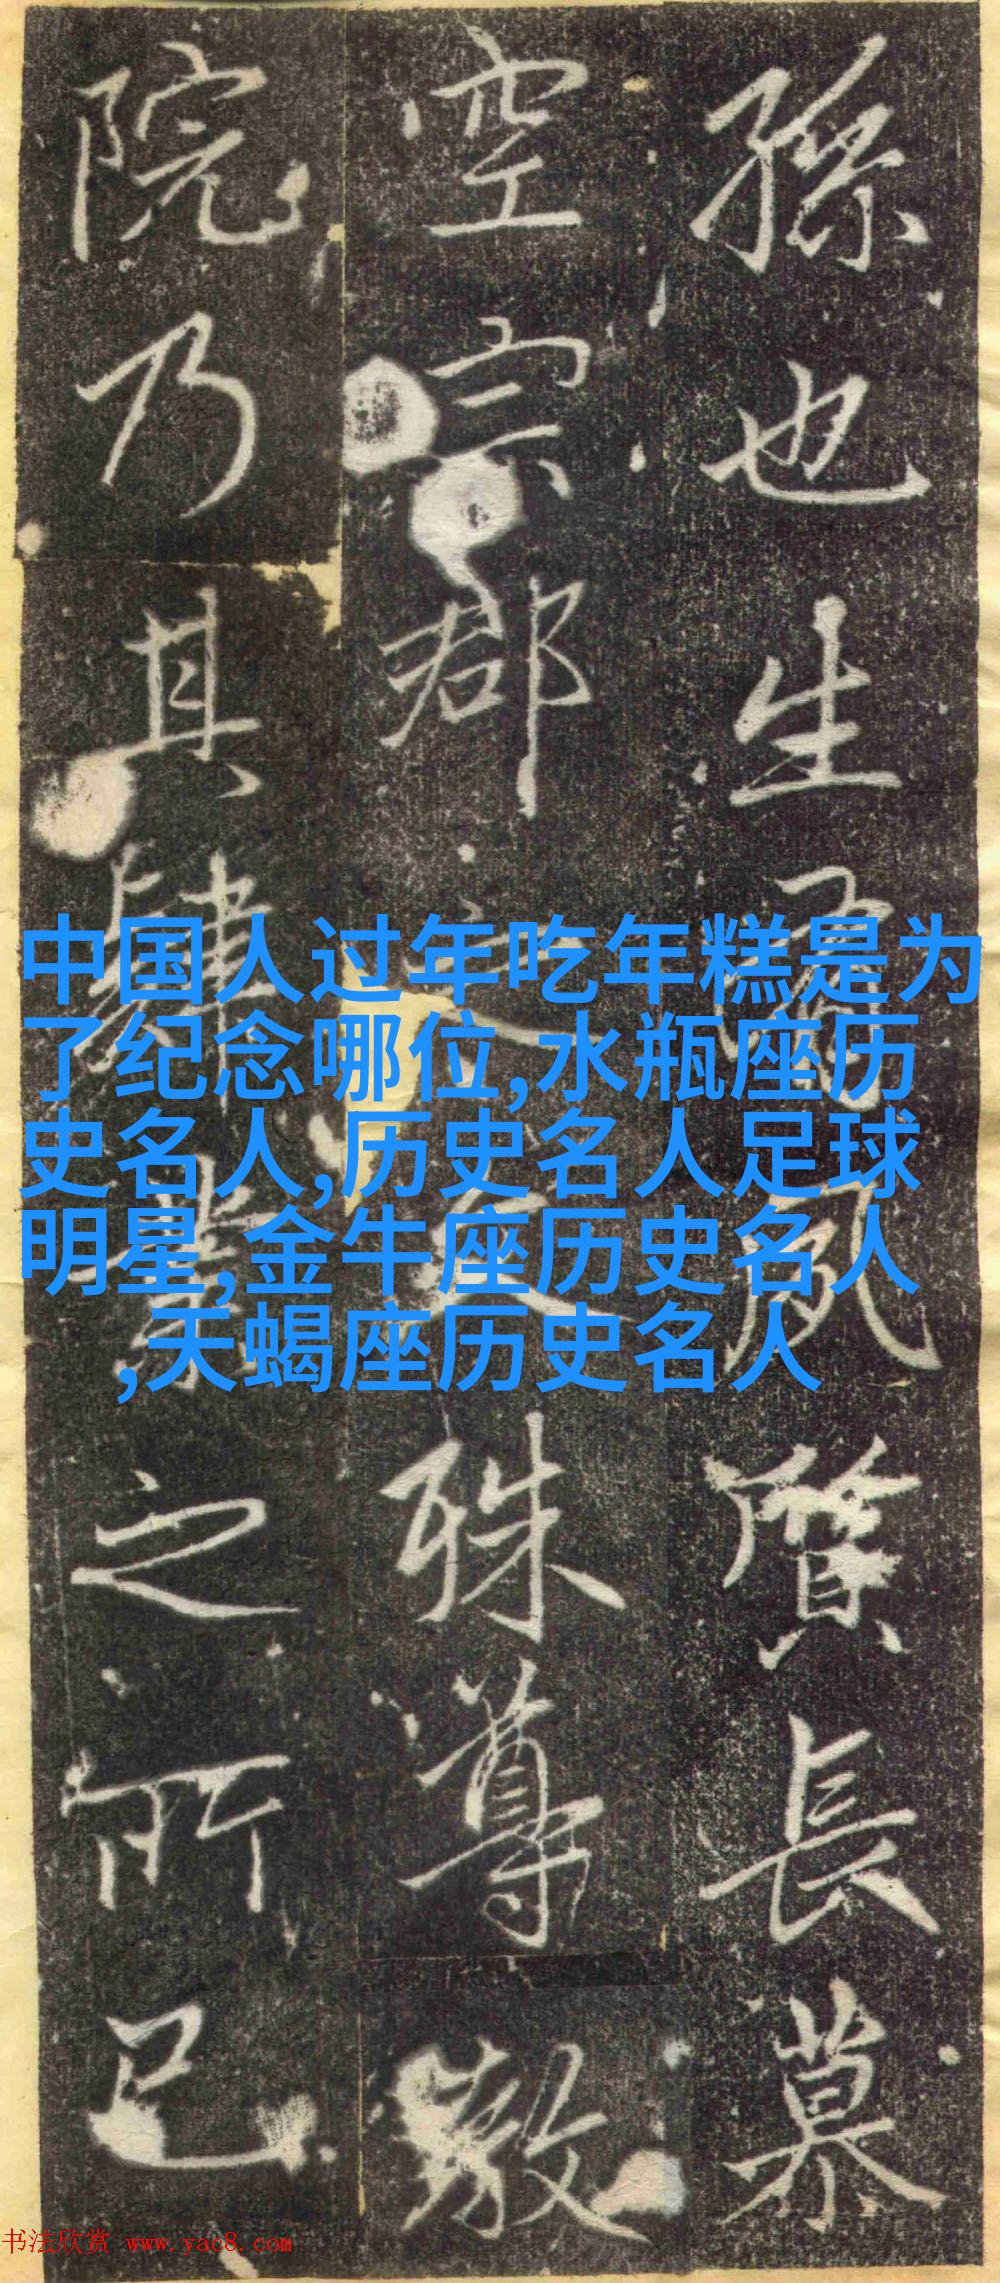 孫也生風質長慕
空宗郡殊尊敬
院乃其肆業之所已
中国人过年吃年糕是为
了纪念哪位,水瓶座历
史名人,历史名人足球
明星,金牛座历史名人
,天蝎座历史名人
书法欣赏 www.yac8.com